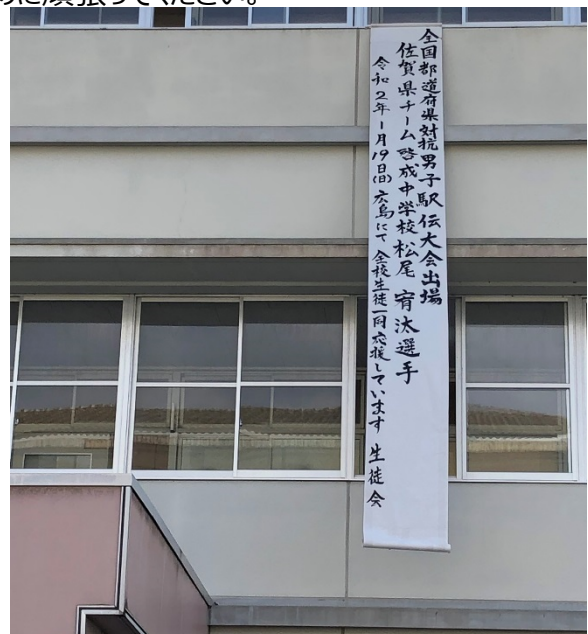 に頑張ってください。
全国都道府県対抗男子駅伝大会出場
佐賀県チーム啓成中学校松尾 宥汰選手
令和2年1月19日(日)広島にて 全校生徒一同応援しています 生徒会